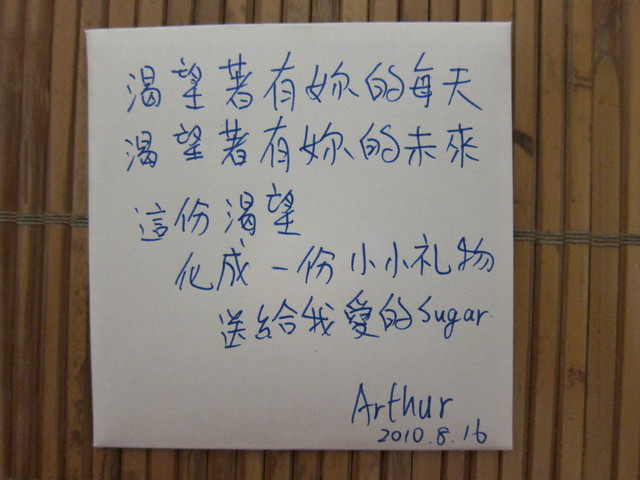 渴望著有妳的每天
渴望著有妳的未來
這份渴望
化成一份小小礼物
送給我愛的Sugar.
Arthur
2010.8.16